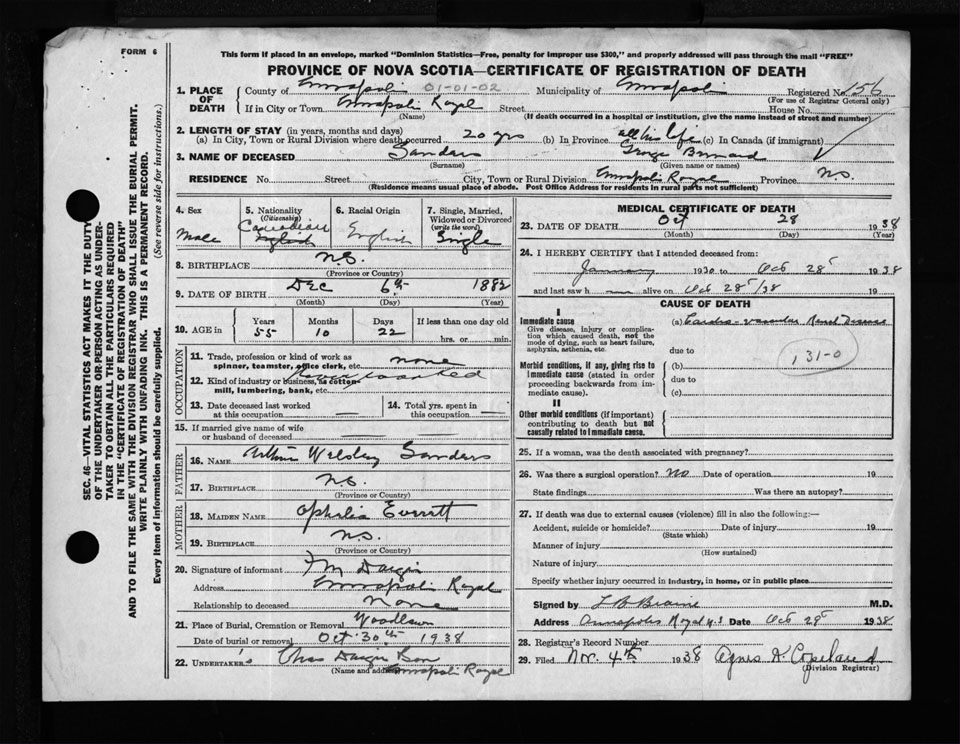 FORM 6
This form if placed in an envelope, marked "Dominion Statistics—Free, penalty for improper use $300," and properly addressed will pass through the mail "FREE"
PROVINCE OF NOVA SCOTIA—CERTIFICATE OF REGISTRATION OF DEATH
SEC. 46—VITAL STATISTICS ACT MAKES IT THE DUTY
OF THE UNDERTAKER OR PERSON ACTING AS UNDER-
TAKER TO OBTAIN ALL THE PARTICULARS REQUIRED
IN THE "CERTIFICATE OF REGISTRATION OF DEATH"
AND TO FILE THE SAME WITH THE DIVISION REGISTRAR WHO SHALL ISSUE THE BURIAL PERMIT.
WRITE PLAINLY WITH UNFADING INK. THIS IS A PERMANENT RECORD.
Every item of information should be carefully supplied. (See reverse side for instructions.)
1. PLACE OF DEATH County of Annapolis 01-01-02 Municipality of Annapolis Registered No. 156
(For use of Registrar General only)
If in City or Town Annapolis Royal Street House No.
(Name) (If death occurred in a hospital or institution, give the name instead of street and number)
2. LENGTH OF STAY (in years, months and days)
(a) In City, Town or Rural Division where death occurred 20 yrs (b) In Province all his life (c) In Canada (if immigrant)
3. NAME OF DECEASED Sanders George Bernard
(Surname) (Given name or names)
RESIDENCE No. Street City, Town or Rural Division Annapolis Royal Province N.S.
(Residence means usual place of abode. Post Office Address for residents in rural parts not sufficient)
4. Sex Male
5. Nationality (Citizenship) Canadian English
6. Racial Origin English
7. Single, Married, Widowed or Divorced (write the word) Single
8. BIRTHPLACE N.S.
(Province or Country)
9. DATE OF BIRTH Dec 6th 1882
(Month) (Day) (Year)
10. AGE in Years Months Days If less than one day old
55 10 22 hrs. or min.
OCCUPATION
11. Trade, profession or kind of work as spinner, teamster, office clerk, etc. none
12. Kind of industry or business, as cotton mill, lumbering, bank, etc.
13. Date deceased last worked at this occupation
14. Total yrs. spent in this occupation
15. If married give name of wife or husband of deceased
FATHER
16. NAME Arthur Welsley Sanders
17. BIRTHPLACE N.S.
(Province or Country)
MOTHER
18. MAIDEN NAME Ophelia Everett
19. BIRTHPLACE N.S.
(Province or Country)
20. Signature of informant F M Dargie
Address Annapolis Royal
Relationship to deceased None
21. Place of Burial, Cremation or Removal Woodlawn
Date of burial or removal Oct 30th 1938
22. UNDERTAKER'S Chas Dargie & Son
(Name and address) Annapolis Royal
MEDICAL CERTIFICATE OF DEATH
23. DATE OF DEATH Oct 28 1938
(Month) (Day) (Year)
24. I HEREBY CERTIFY that I attended deceased from:
January 1930 to Oct 28 1938
and last saw h alive on Oct 28/38 19
CAUSE OF DEATH
I
Immediate cause (a) Cardio-vascular Renal Disease
Give disease, injury or complication which caused death, not the mode of dying, such as heart failure, asphyxia, asthenia, etc.
due to
131-0
Morbid conditions, if any, giving rise to immediate cause (stated in order proceeding backwards from immediate cause). (b)
due to
(c)
II
Other morbid conditions (if important) contributing to death but not causally related to immediate cause.
25. If a woman, was the death associated with pregnancy?
26. Was there a surgical operation? No Date of operation 19
State findings Was there an autopsy?
27. If death was due to external causes (violence) fill in also the following:—
Accident, suicide or homicide? Date of injury 19
(State which)
Manner of injury
(How sustained)
Nature of injury
Specify whether injury occurred in industry, in home, or in public place
Signed by L B Braine M.D.
Address Annapolis Royal N.S Date Oct 29 1938
28. Registrar's Record Number
29. Filed Nov. 4th 1938 Agnes K. Copeland
(Division Registrar)